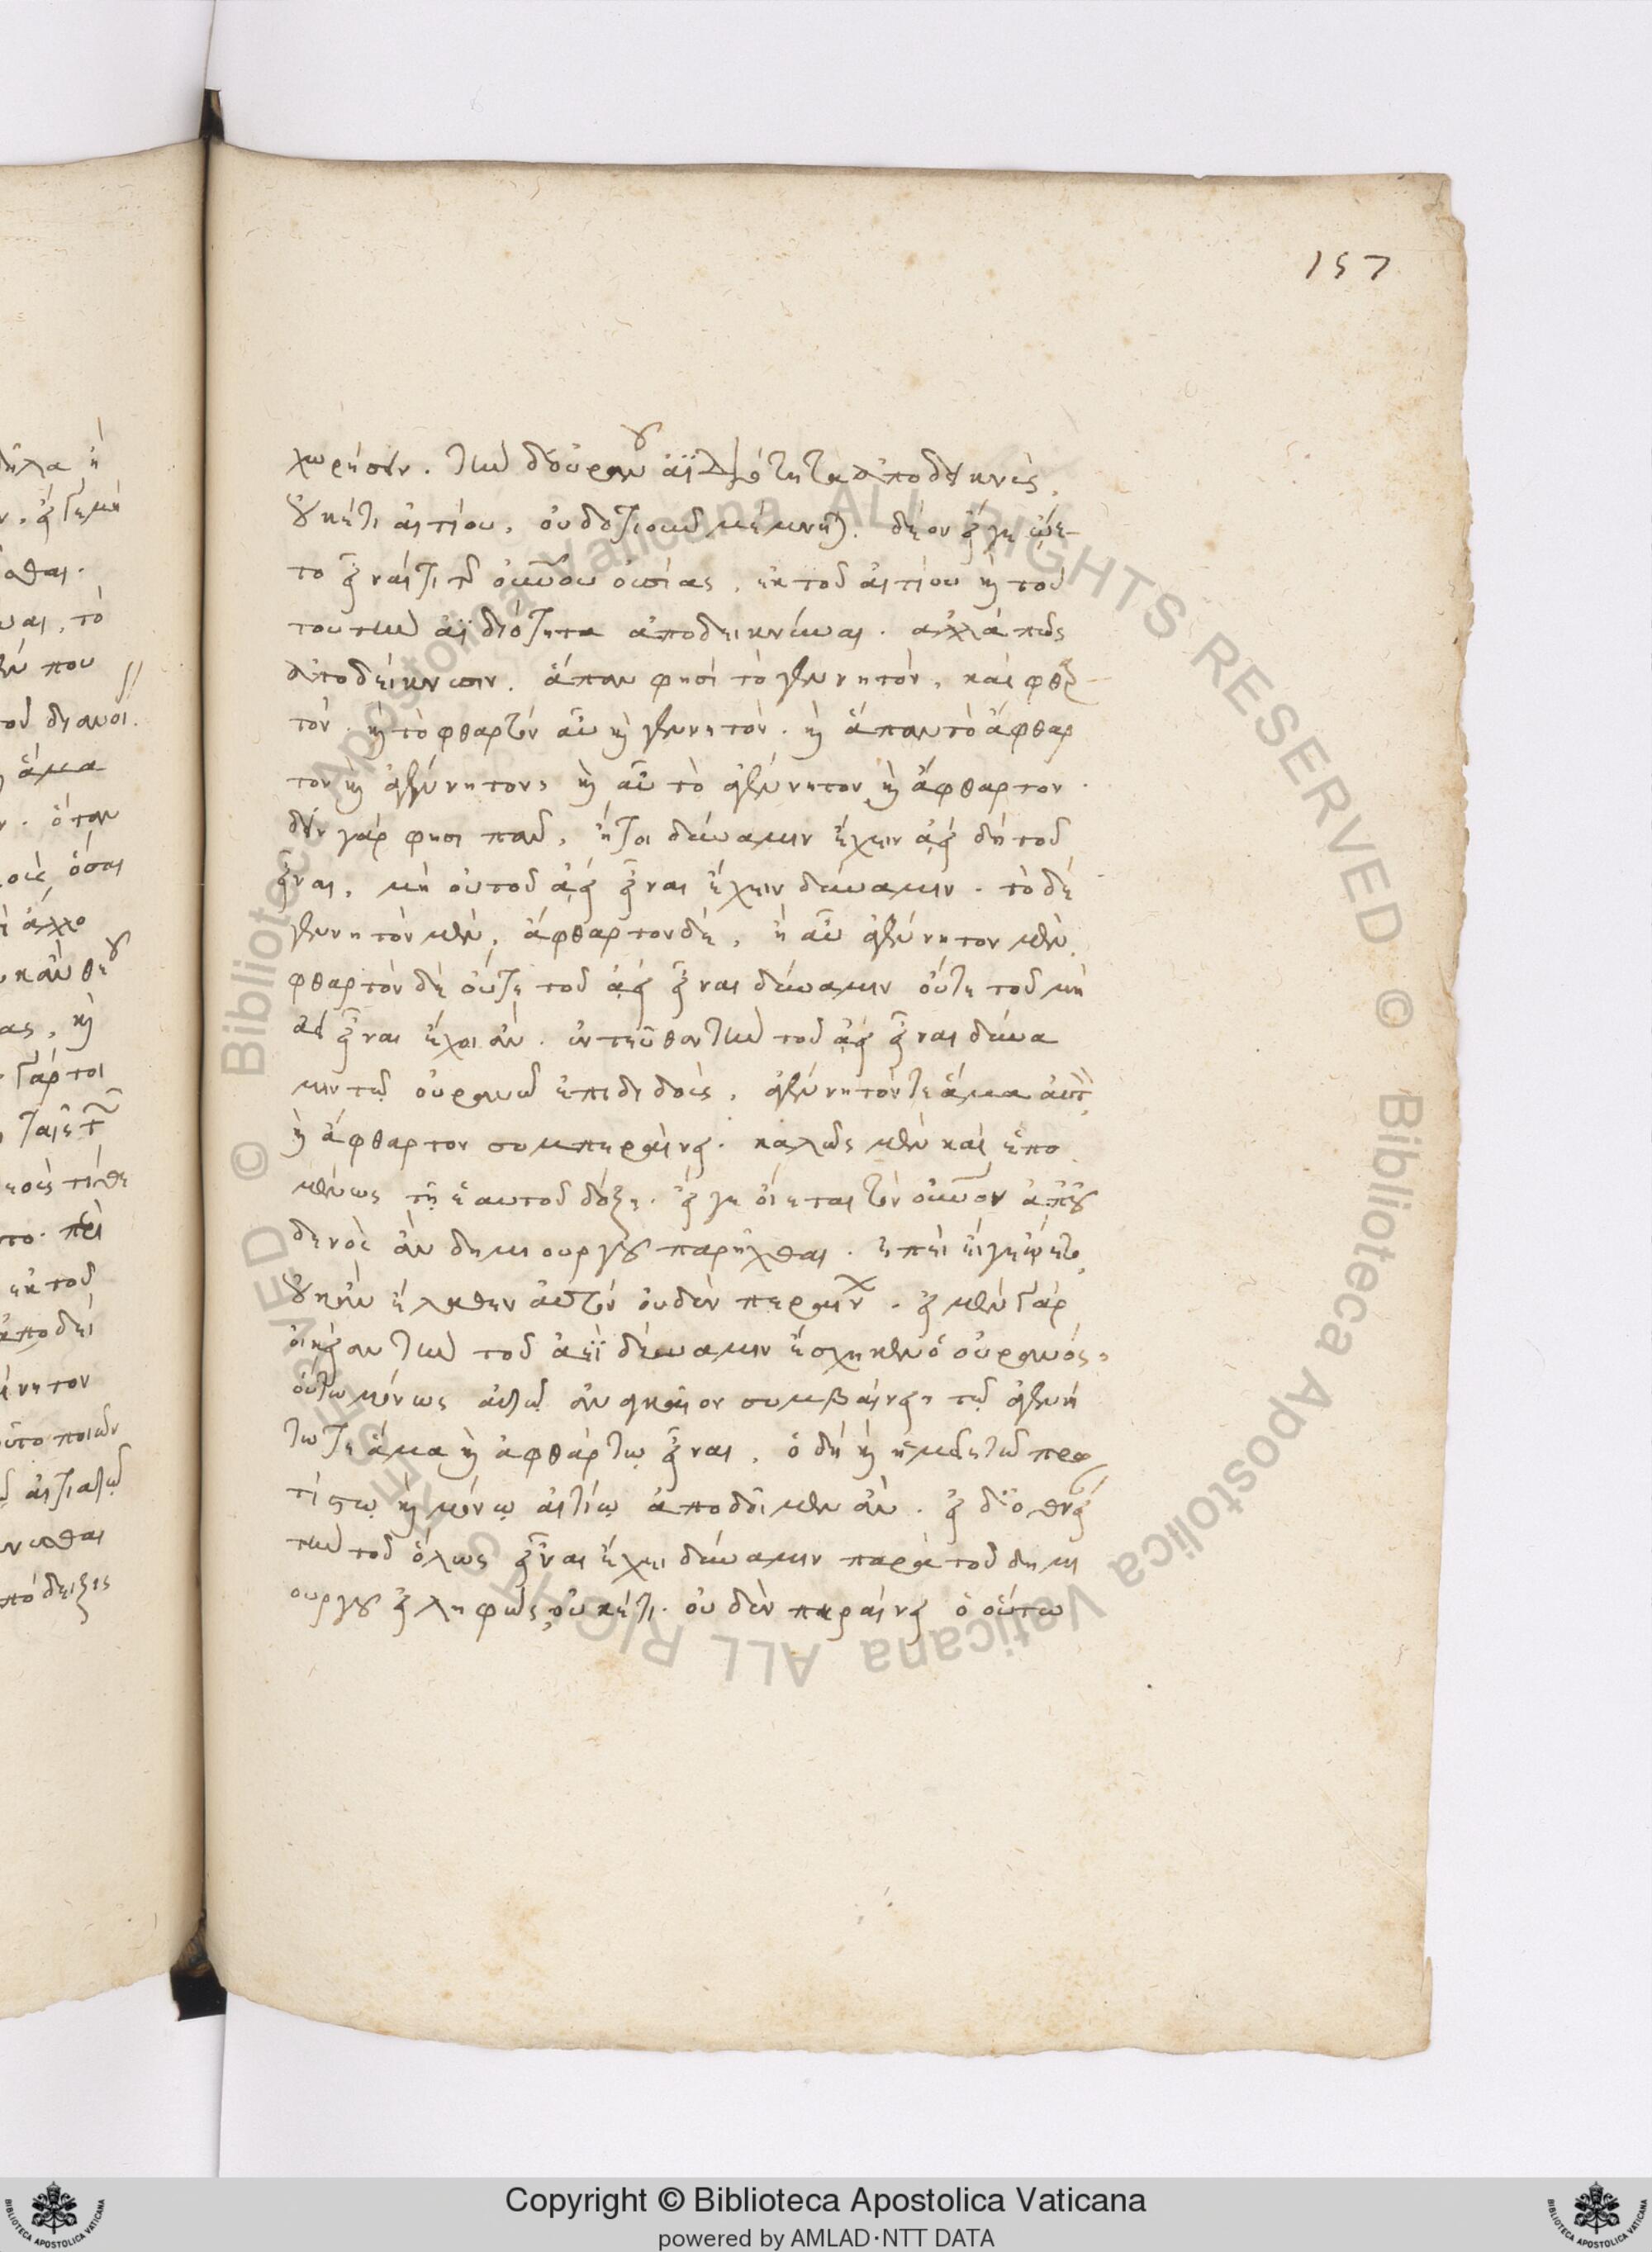 157
χωρήσειν. τὴν δ' οὐρανοῦ ἀϊδιότητα ἀποδεικνὺς,
οὐκέτι αἰτίου, οὐδοτιοῦν μέμνηται. δέον εἴγε ᾤε-
το εἶναί τι τῆς ἐκείνου οὐσίας, ἐκ τοῦ αἰτίου καὶ τού
του τὴν ἀϊδιότητα ἀποδεικνύναι. ἀλλὰ πῶς
ἀποδείκνυσιν. ἅπαν φησὶ τὸ γενητόν, καὶ φθαρ
τόν. καὶ τὸ φθαρτὸν αὖ καὶ γενητόν. καὶ ἅπαν τὸ ἄφθαρ
τον καὶ ἀγένητον, καὶ αὖ τὸ ἀγένητον καὶ ἄφθαρτον.
δεῖν γάρ φησι πᾶν, ἤτοι δύναμιν ἔχειν ἀεὶ δὴ τοῦ
εἶναι, μὴ οὐ τοῦ ἀεὶ εἶναι ἔχειν δύναμιν. τὸ δὲ
γενητὸν μὲν, ἄφθαρτον δὲ, ἢ αὖ ἀγένητον μὲν,
φθαρτὸν δὲ οὔτε τοῦ ἀεὶ εἶναι δύναμιν οὔτε τοῦ μὴ
ἀεὶ εἶναι ἔχοι ἄν. ἐντεῦθεν τὴν τοῦ ἀεὶ εἶναι δύνα
μιν τῷ οὐρανῷ ἐπιδιδοὺς, ἀγένητόν τε ἅμα αὐτὸν
καὶ ἄφθαρτον συμπεραίνει. καλῶς μὲν καὶ ἑπο
μένως τῇ ἑαυτοῦ δόξῃ. εἴγε οἴεται τὸν οὐρανὸν ἀπ' οὐ
δενὸς ἂν δημιουργοῦ παρῆχθαι. ἐπεὶ εἴγε ᾤετο,
οὐκ ἂν ἔλαθεν αὐτὸν οὐδὲν περαίνων. εἰ μὲν γὰρ
οἰκείαν τὴν τοῦ ἀεὶ δύναμιν ἔσχηκεν ὁ οὐρανός,
οὕτω μόνως αὐτῷ ἀναγκαῖον συμβαίνει, τῷ ἀγενή
τῳ τε ἅμα καὶ ἀφθάρτῳ εἶναι, ὃ δὴ καὶ ἡμεῖς τῷ πρω
τίστῳ καὶ μόνῳ αἰτίῳ ἀποδοῖμεν ἄν. εἰ δ' ὀθνείαν
τὴν τοῦ ὅλως εἶναι ἔχει δύναμιν παρὰ τοῦ δημι
ουργοῦ εἰληφὼς, οὐκέτι. οὐδὲν περαίνει ὁ οὕτω